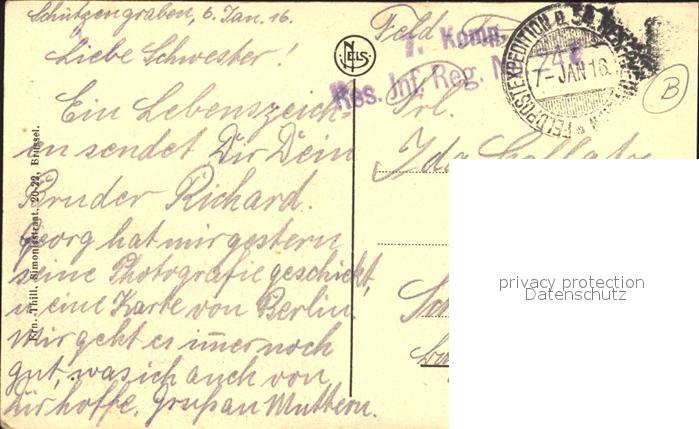 Schützengraben, 6. Jan. 16.
Liebe Schwester!
Ein Lebenszeich-
en sendet Dir Dein
Bruder Richard.
Georg hat mir gestern
seine Photografie geschickt,
u eine Karte von Berlin.
Mir geht es im̅er noch
gut, was ich auch von
Dir hoffe. Gruß an Muttern.
Ern. Thill, Simonisstraat, 20-22, Brüssel.
NELS
Feld
7. Komp.
Res. Inf. Reg.
FELDPOSTEXPEDITION
7-JAN 16.
B
Frl.
Ida
privacy protection
Datenschutz